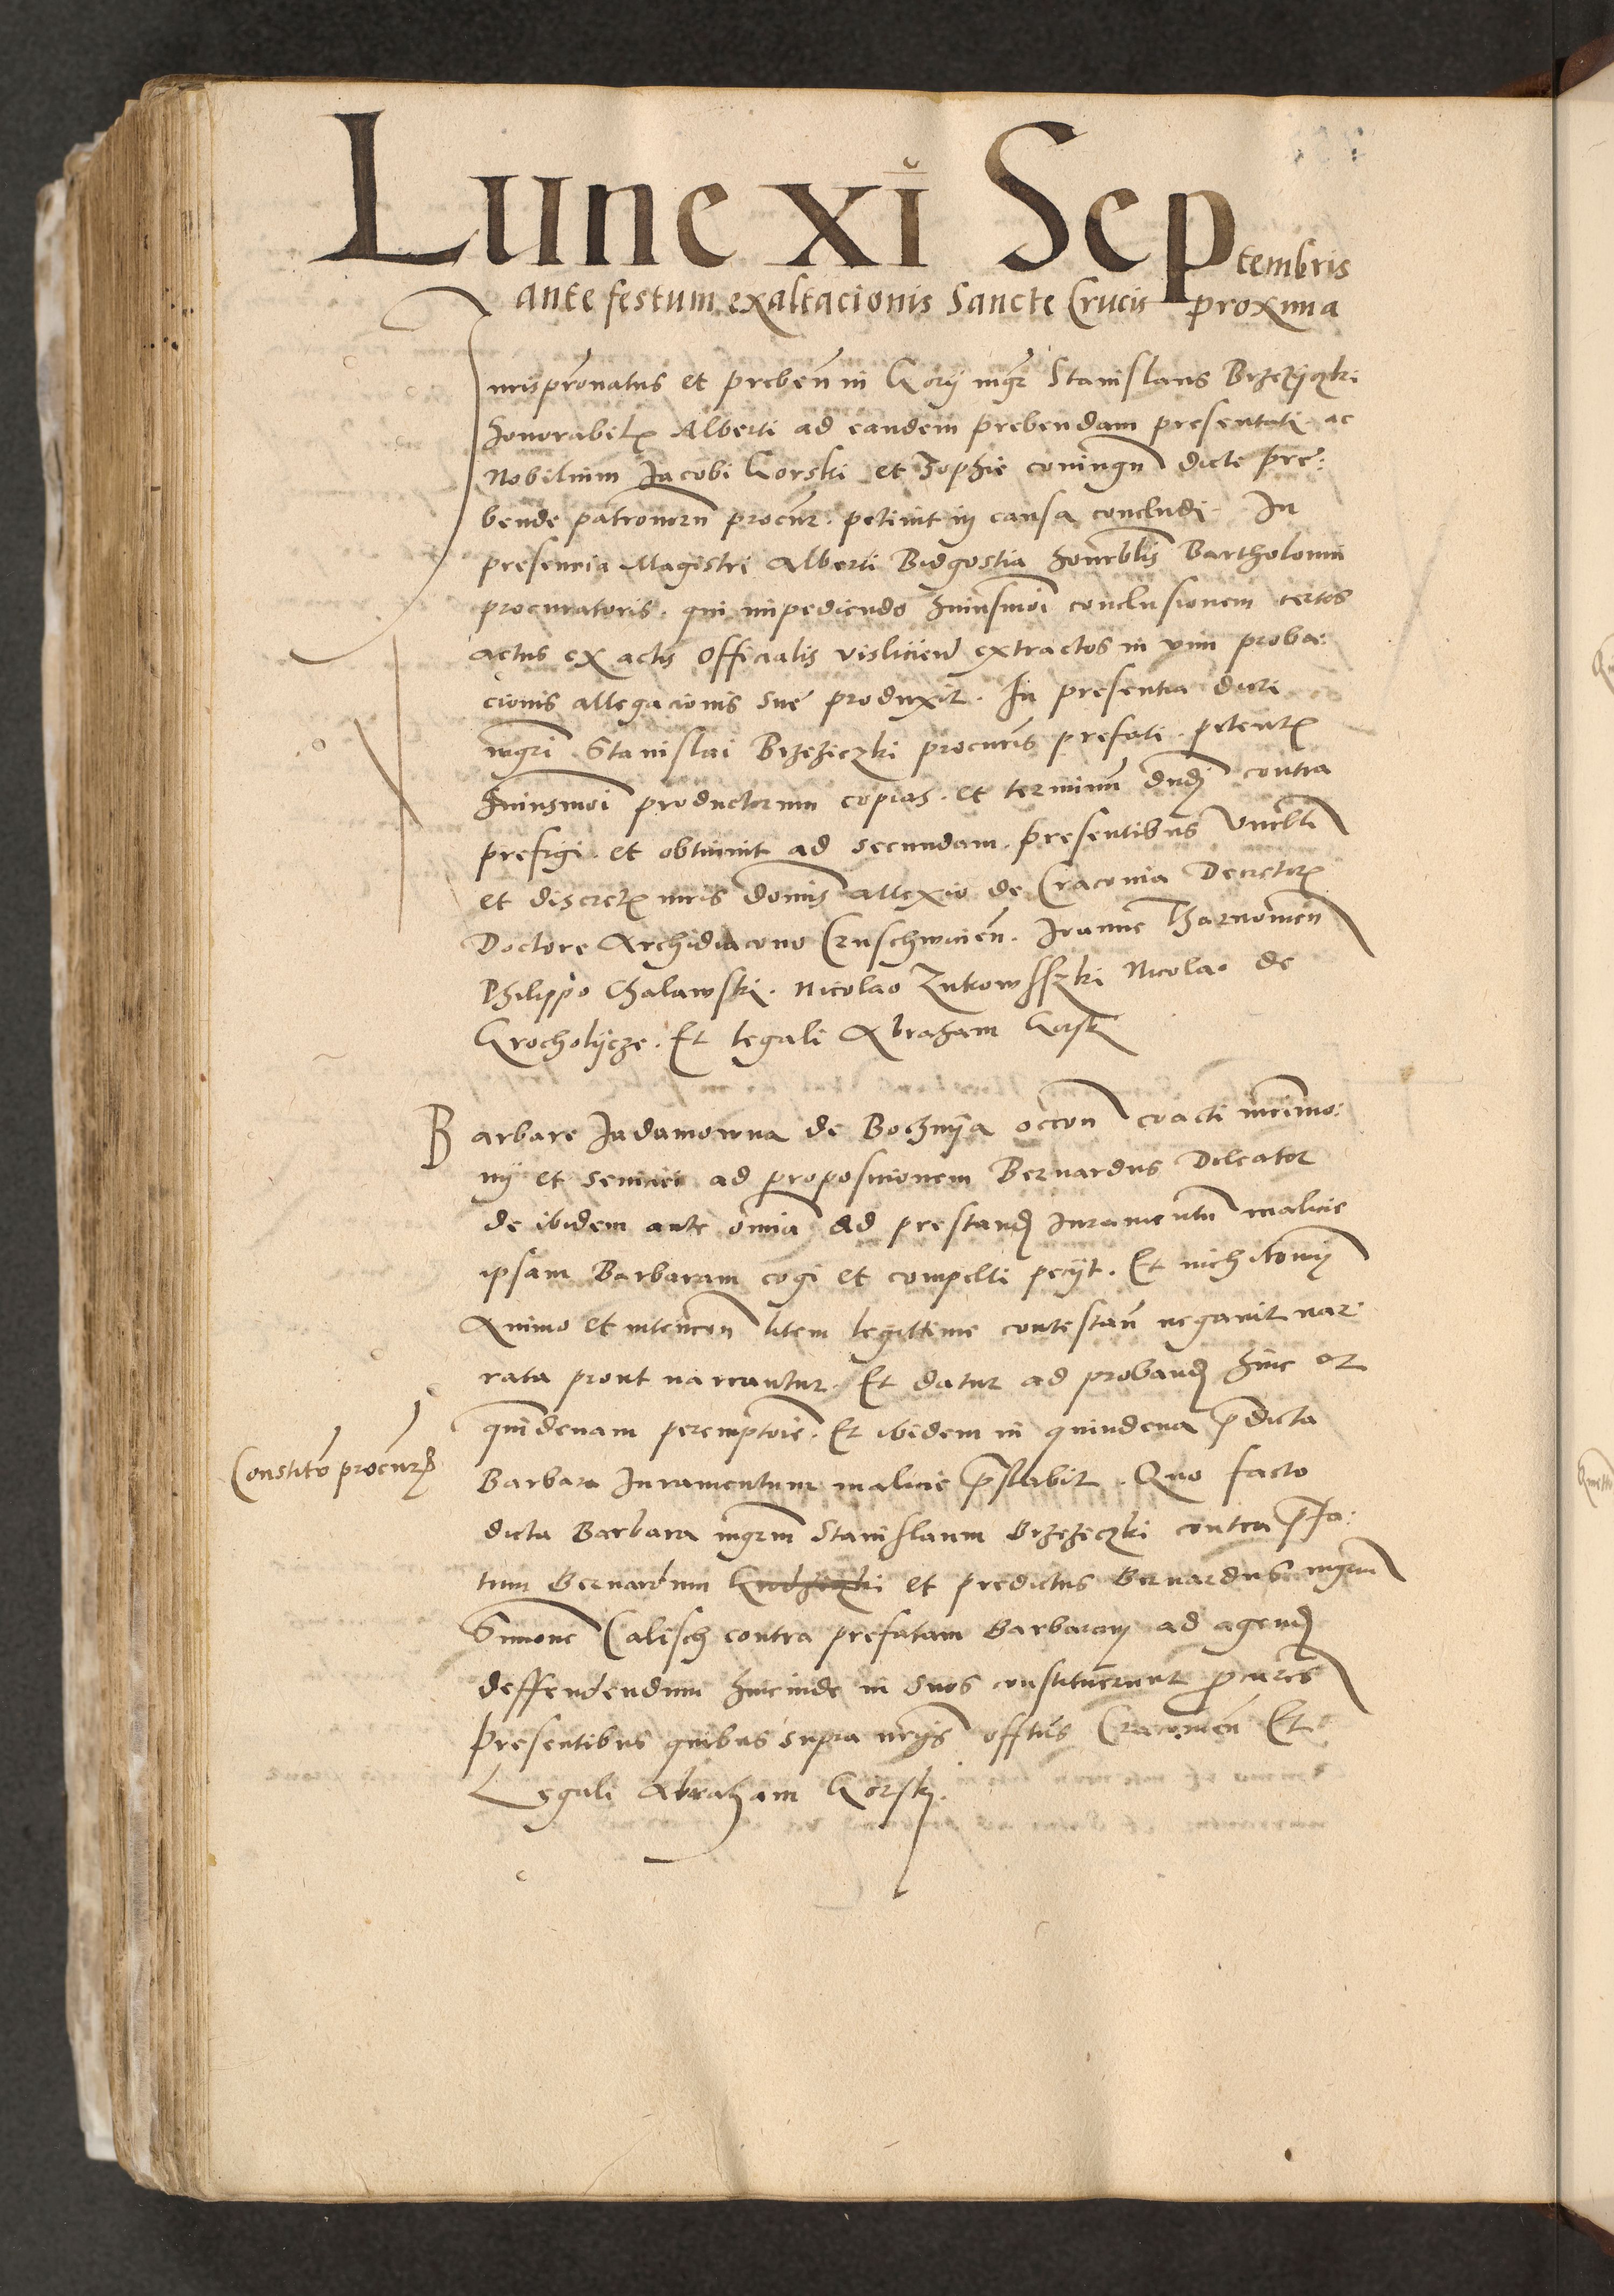 Lune xi Septembris
ante festum exaltacionis Sancte Crucis proxima
Jurispronatus et preben in Gory mgr Stanislaus Brzezyczki
honorabil Alberti ad eandem prebendam presentati ac
Nobilium Jacobi Gorski et Zophie coniugu dicte pre:
bende patronoru procur. petiuit in causa concludi. In
presencia Magistri Alberti Bidgostia honorblis Bartholomei
procuratoris. qui impediendo huiusmoi conclusionem certos
actus ex actis Officialis visliciens extractos in vim proba:
cionis allegacionis sue produxit. In presentia dicti
mgri Stanislai Brzeziczki procuris prefati. petent
huiusmoi productorum copias. et terminum dnd contra
prefigi. et obtinuit ad secundam. presentibus venerbli
et discret viris dominis Allexio de Cracouia Decretor
Doctore Archidiacono Cruschwicien. Joanne Tharnowien
Philippo Chalawski. Nicolao Zukowsszki Nicolao de
Grocholycze. Et legali Abraham Gorsk
Barbare Jadamowna de Bochnya occon coacti mrimo:
nij et ad proposicionem Bernardus Doleator
de ibidem ante omia ad prestand Iuramentu malicie
ipsam Barbaram cogi et compelli pecijt. Et nichilomin
Animo et intencon litem legittime contestan negauit nar:
rata prout narrantur. Et datur ad proband hinc ad
quindenam peremptorie. Et ibidem in quindena predicta
Constito procur
Barbara Iuramentum malicie prestabit. Quo facto
dicta Barbara mgrum Stanislaum Brzeziczki contra prefa:
tum Bernardum et predictus Bernardus mgrum
Simone Calisch contra prefatam Barbaram ad agend
deffendendum hincinde in suos constituerunt procures
Presentibus quibus supra notarijs offitus Cracouien Et
Legali Abraham Gorsky.